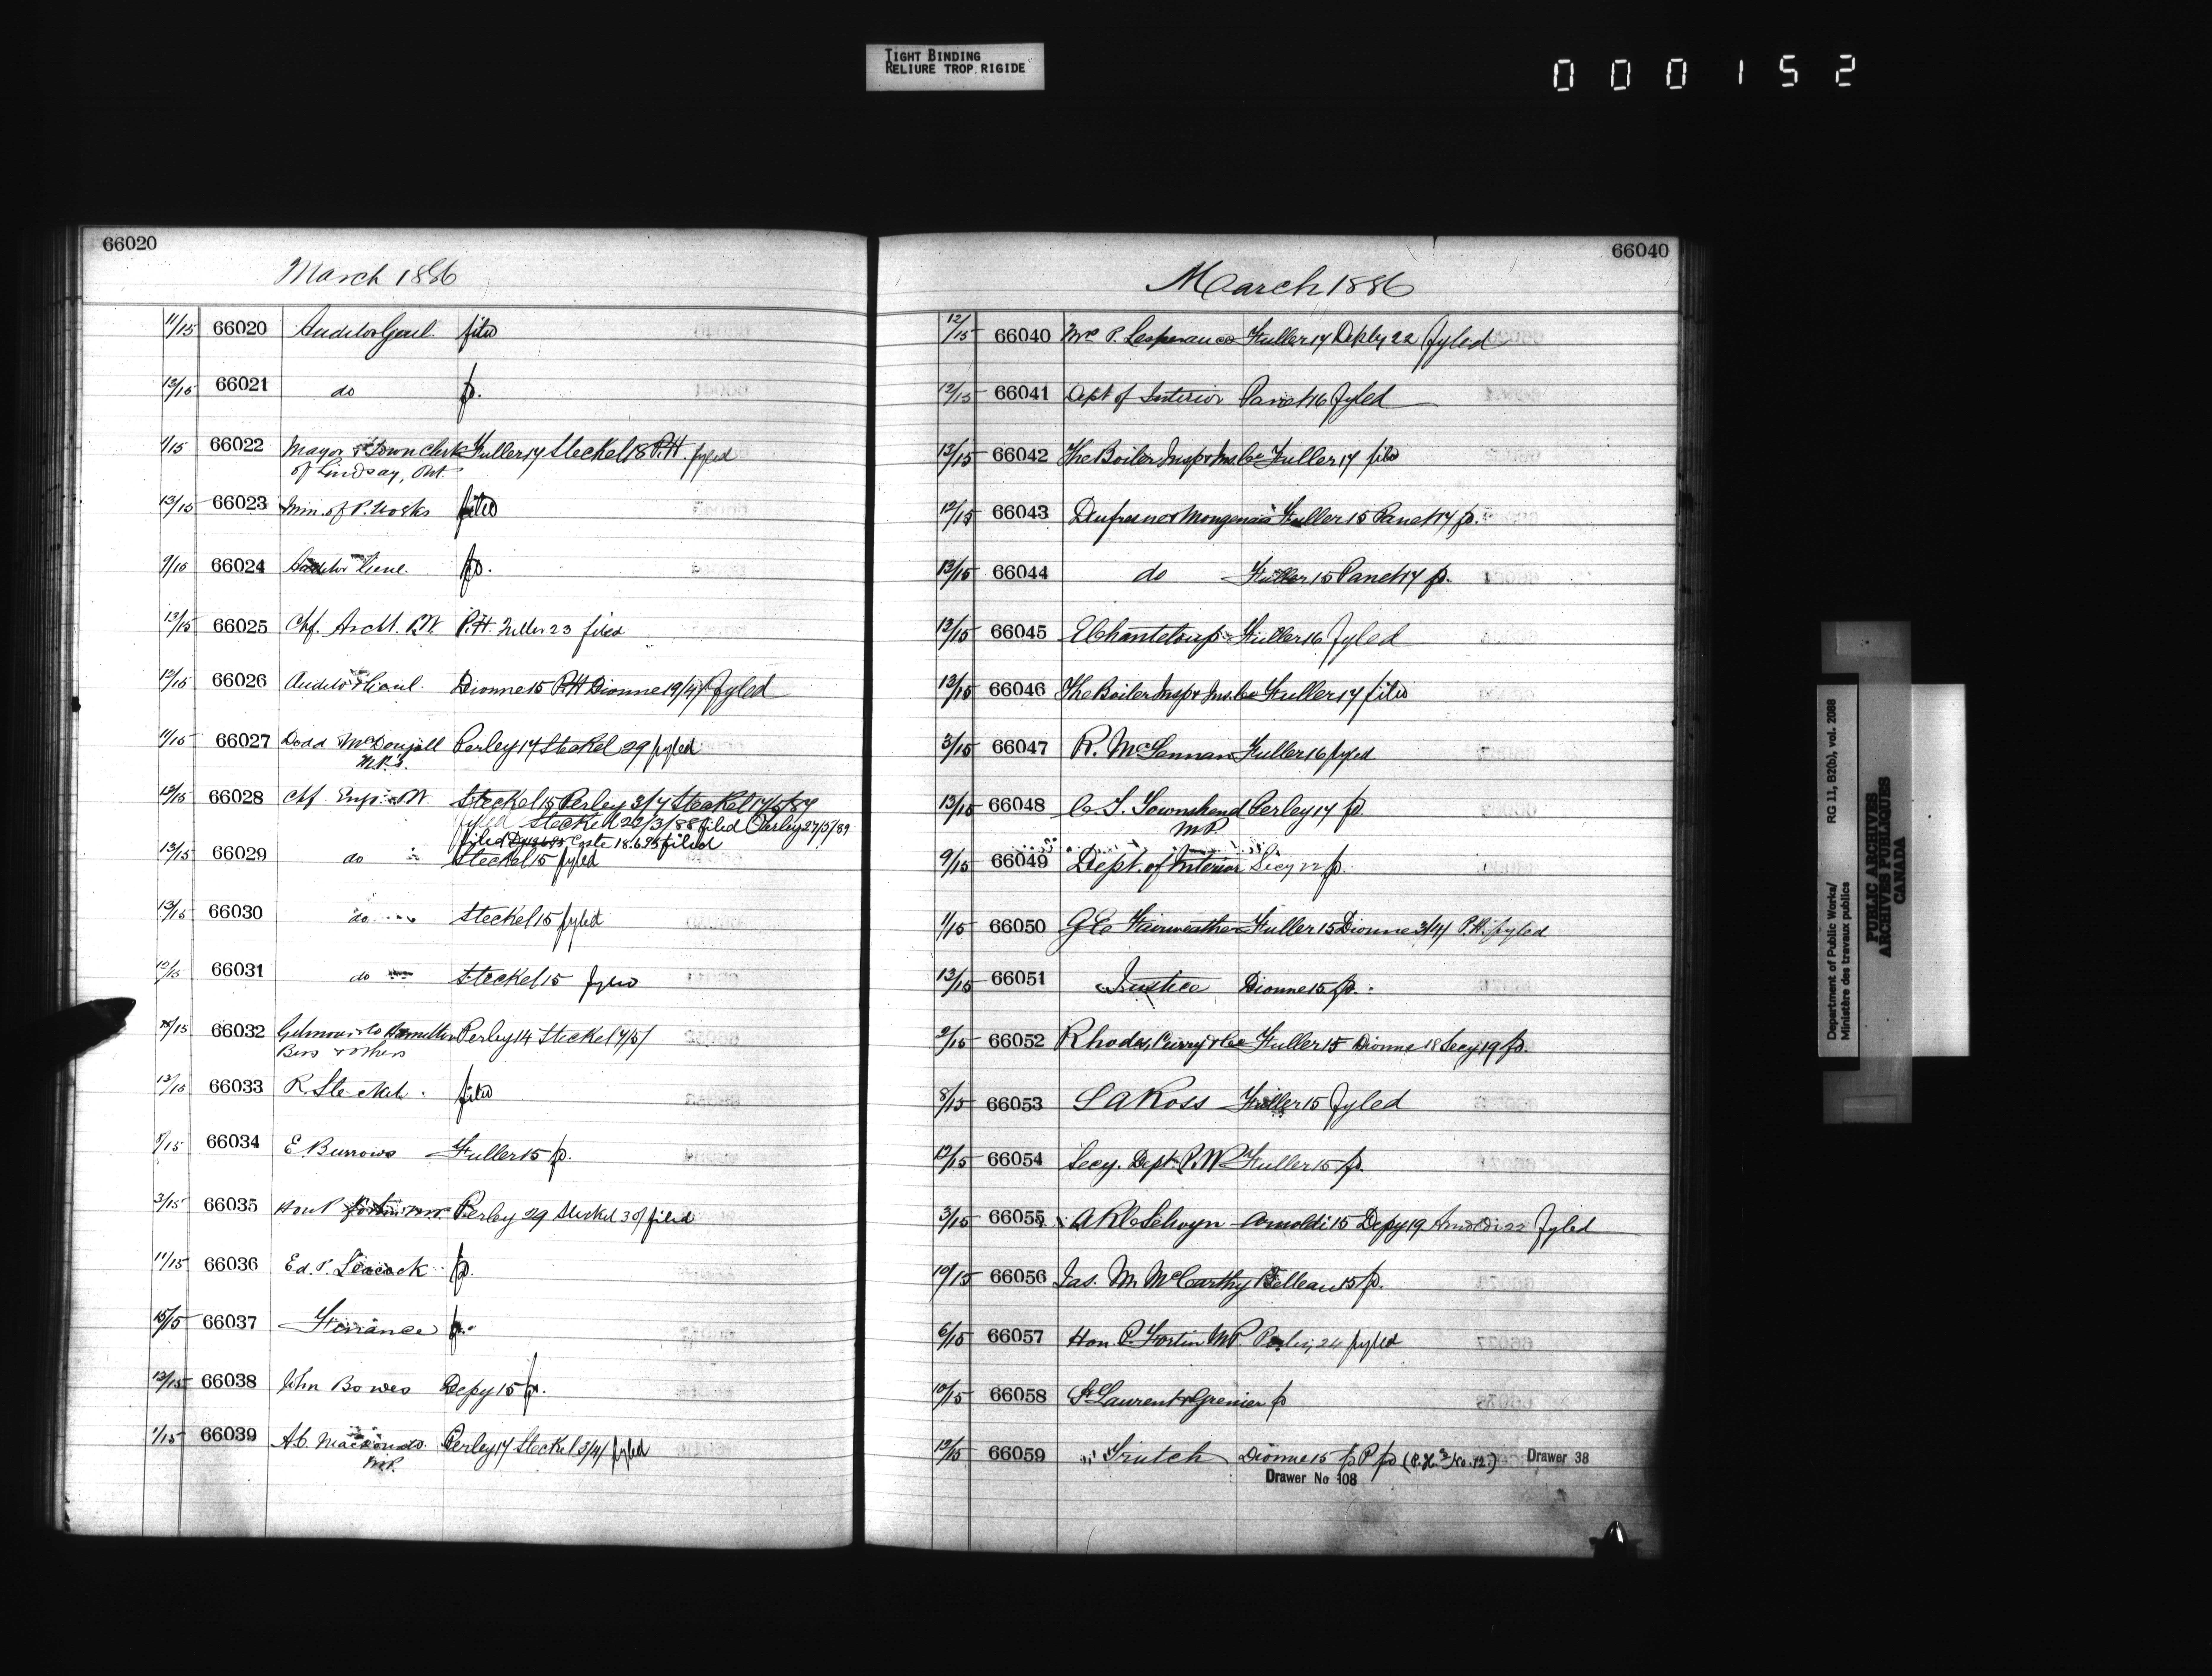 TIGHT BINDING
RELIURE TROP RIGIDE
000152
66020
March 1886
11/15 66020 Auditor Genl. filed
13/15 66021 do p.
1/15 66022 Mayor & Town Clerk Fuller 17 Steckel 18 P.H. fyled
of Lindsay, Ont.
13/15 66023 Min. of P. Works filed
9/15 66024 Auditor Genl. p.
13/15 66025 Chf. Archt. P.W. P.H. Fuller 23 filed
12/15 66026 Auditor Genl. Dionne 15 P.H Dionne 19/4/ fyled
11/15 66027 Dodd McDougall Perley 17 Steckel 29 fyled
M.P.s.
12/15 66028 Chf Engr. P.W. Steckel 15 Perley 3/7 Steckel 17/5/87
fyled Steckel 22/3/88 filed Perley 27/5/89
filed Coste 18.6.95 filed
13/15 66029 do Steckel 15 fyled
13/15 66030 do Steckel 15 fyled
12/15 66031 do Steckel 15 fyled
66032 Gilmour & Co Hamilton Perley 14 Steckel 4/5/
Bros & others
12/15 66033 R. Steckel filed
8/15 66034 E. Burrows Fuller 15 p.
3/15 66035 Hon P. Fortin M.P. Perley 29 Steckel 30/ filed
11/15 66036 Ed. P. Leacock p.
15/15 66037 Finance p.
13/15 66038 John Bowes Depy 15 p.
1/15 66039 A.C. Macdonald. Perley 17 Steckel 3/4/ fyled
M.P.
66040
March 1886
12/15 66040 P. Lesperance Fuller 17 Depy 22 fyled
12/15 66041 Dept of Interior Panet 16 fyled
13/15 66042 The Boiler Insp & Ins. Co Fuller 17 filed
12/15 66043 Dufresne & Mongenais Fuller 15 Panet 17 p.
13/15 66044 do Fuller 15 Panet 17 p.
13/15 66045 E Chanteloup Fuller 16 fyled
13/15 66046 The Boiler Insp & Ins. Co Fuller 17 filed
3/15 66047 R. McLennan Fuller 16 fyled
13/15 66048 C. J. Townshend Perley 17 p.
M.P.
9/15 66049 Dept. of Interior Secy 22 p.
11/15 66050 G C Fairweather Fuller 15 Dionne 3/4/ P.H. fyled
13/15 66051 Justice Dionne 15 p.
2/15 66052 Rhodes, Curry & Co Fuller 15 Dionne 18 Secy 19 p.
8/15 66053 S A Ross Fuller 15 fyled
12/15 66054 Secy. Dept. P.W Fuller 15 p.
3/15 66055 A R C Selwyn Arnoldi 15 Depy 19 Arnoldi 22 fyled
10/15 66056 Jas. M McCarthy Belleau 15 p.
6/15 66057 Hon. P. Fortin M.P. Perley 24 fyled
10/15 66058 St Laurent & Grenier p
12/15 66059 Trutch Dionne 15 p P p (P.H. No. 12.) Drawer 38
Drawer No 108
Department of Public Works/ RG 11, B2(b), vol. 2088
Ministère des travaux publics
PUBLIC ARCHIVES
ARCHIVES PUBLIQUES
CANADA